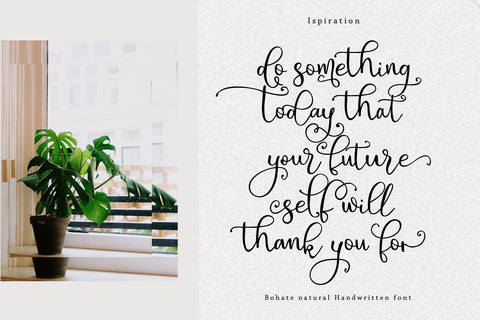 Ispiration
do something
today that
your future
self will
thank you for
Bohate natural Handwritten font